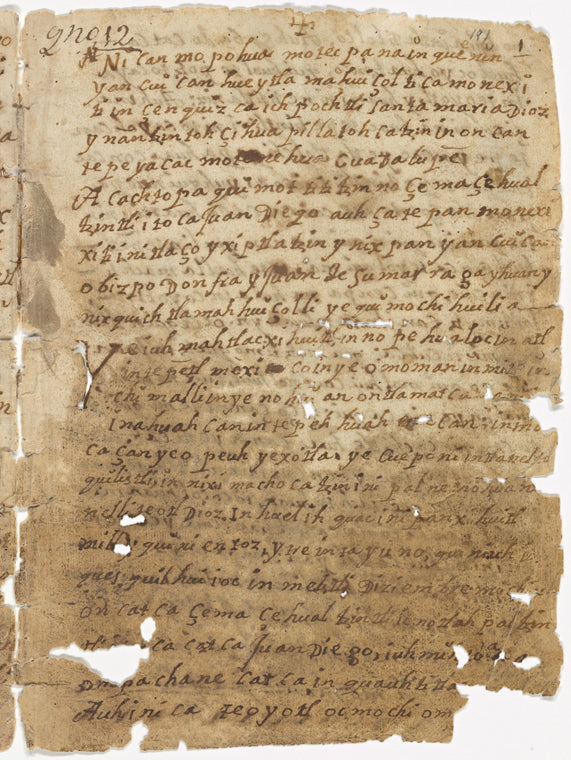 gno 12
181 1
Nican mopohua motecpana in quenin
yancuican hueytlamahuiçoltica monexi
ti in çenquizca ichpochtli Santa maria Dioz
ynantzin toçihuapillatohcatzin in oncan
tepeyacac motenehua Guadalupe
Acachtopa quimottitzinno çe maçehual
tzintli itoca Juan Diego auh çatepan monexi
xiti initlaço yxiptlatzin ynixpan yancuican
obizpo Don fray Juan de Sumarraga yhuan y
nixquich tlamahhuiçolli ye quimochihuilia
Ye iuh mahtlacxihuitl in no pehualoc in atl
in tepetl mexico in ye omoman in mitl in
chimalli in ye nohuian ontlamatca
in ahuahcan in tepehuahcan in
ca çan ye opeuh ye xotla ye cueponi in tlanel
quiliztli in iximachocatzin in ipalnemohuani
nelli teotl Dioz In huel ih quac in ipan xihuitl
mill y quinientoz, y treinta y uno, quin iuh
quezquilhuioc in metztli Diziembre mochiuh
oncatca çe maçehualtzintli icnotlapaltzin
itoca catca Juan Diego, iuh mitoa
ompa chane catca in quauhtitlan
Auh in ica teoyotl oc mochi om